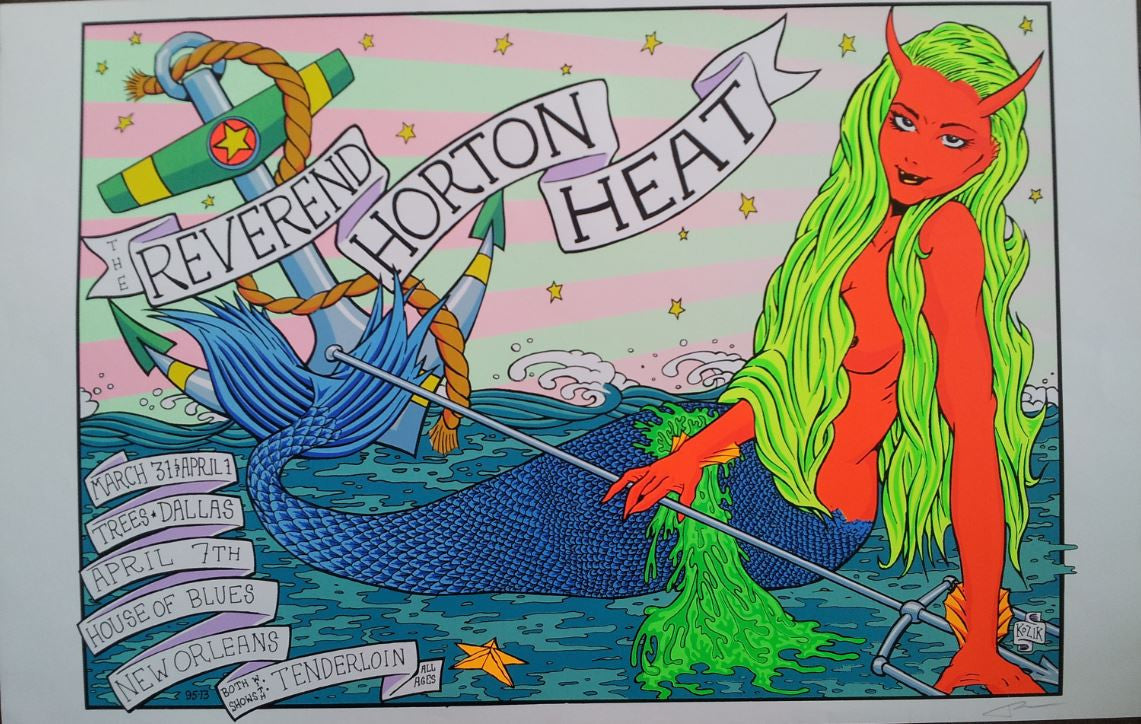 THE
REVEREND
HORTON
HEAT
MARCH 31ST APRIL 1
TREES • DALLAS
APRIL 7TH
HOUSE OF BLUES
NEW ORLEANS
BOTH W.
SHOWS
TENDERLOIN
ALL
AGES
95-13
KOZIK